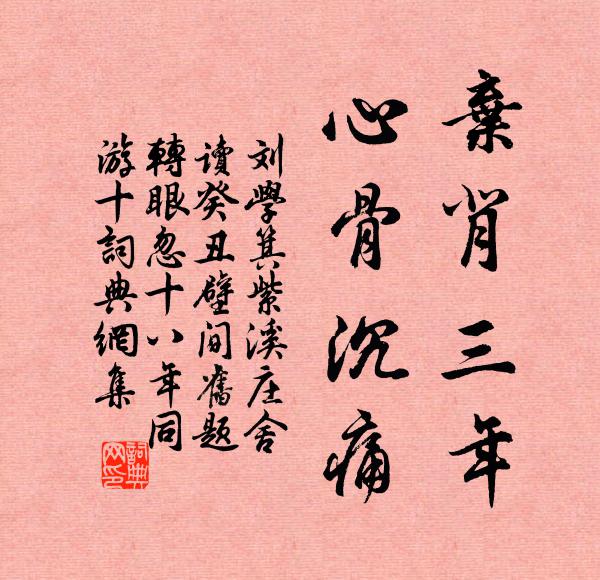 棄背三年
心骨沉痛
刘學箕紫溪庄舍
讀癸丑壁间舊题
轉眼忽十八年同
游十詞典網集
詞典网印